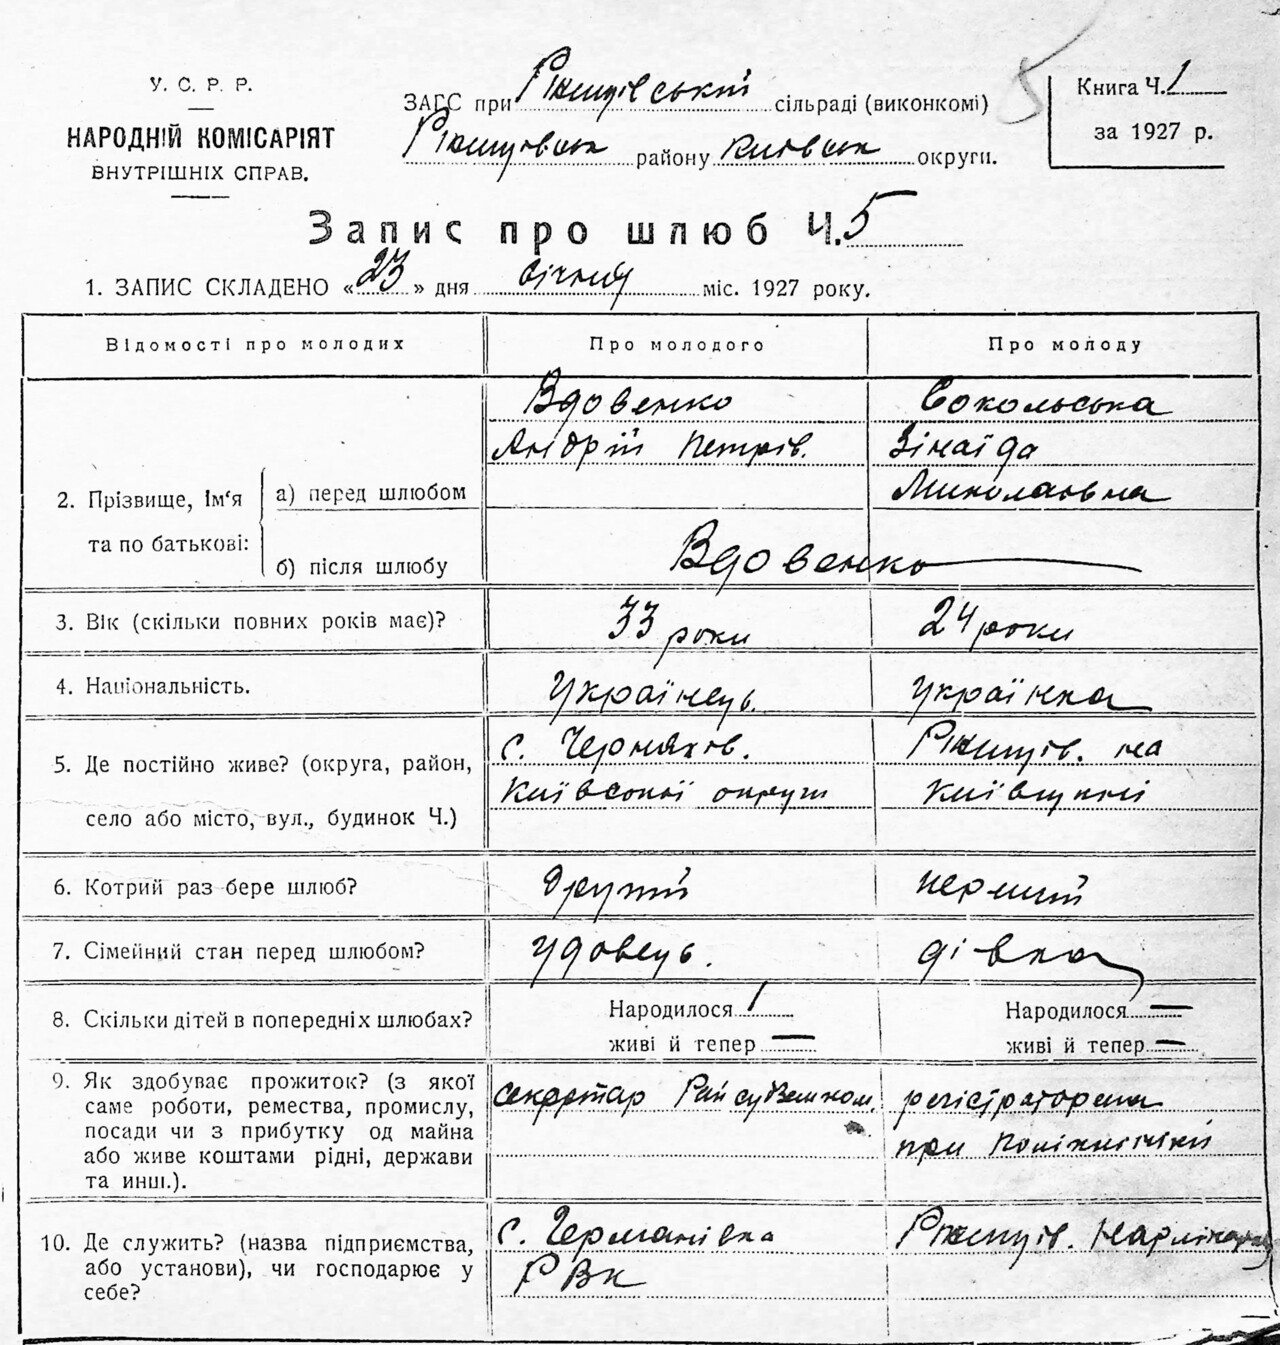 У. С. Р. Р.
НАРОДНІЙ КОМІСАРІЯТ
ВНУТРІШНІХ СПРАВ.
ЗАГС при Ржищівській сільраді (виконкомі)
Ржищівськ району Київськ округи.
5
Книга Ч. 1
за 1927 р.
Запис про шлюб Ч. 5
1. ЗАПИС СКЛАДЕНО «23» дня січня міс. 1927 року.
Відомості про молодих Про молодого Про молоду
2. Прізвище, Ім‘я та по батькові:
а) перед шлюбом
Вдовенко
Андрій Петрів.
Сокольська
Зінаїда
Миколаївна
б) після шлюбу
Вдовенко
3. Вік (скільки повних років має)? 33 роки 24 роки
4. Національність. Українець. Українка
5. Де постійно живе? (округа, район,
село або місто, вул., будинок Ч.)
с. Черняхів.
Київської округи
Ржищів. на
Київщині
6. Котрий раз бере шлюб? другий перший
7. Сімейний стан перед шлюбом? удовець. дівка
8. Скільки дітей в попередніх шлюбах?
Народилося 1
живі й тепер —
Народилося —
живі й тепер —
9. Як здобуває прожиток? (з якої
саме роботи, ремества, промислу,
посади чи з прибутку од майна
або живе коштами рідні, держави
та инш.).
секретар Райсудземком.
регістраторка
при поліклініки
10. Де служить? (назва підприємства,
або установи), чи господарює у
себе?
с. Германівка
РВК
Ржищів.